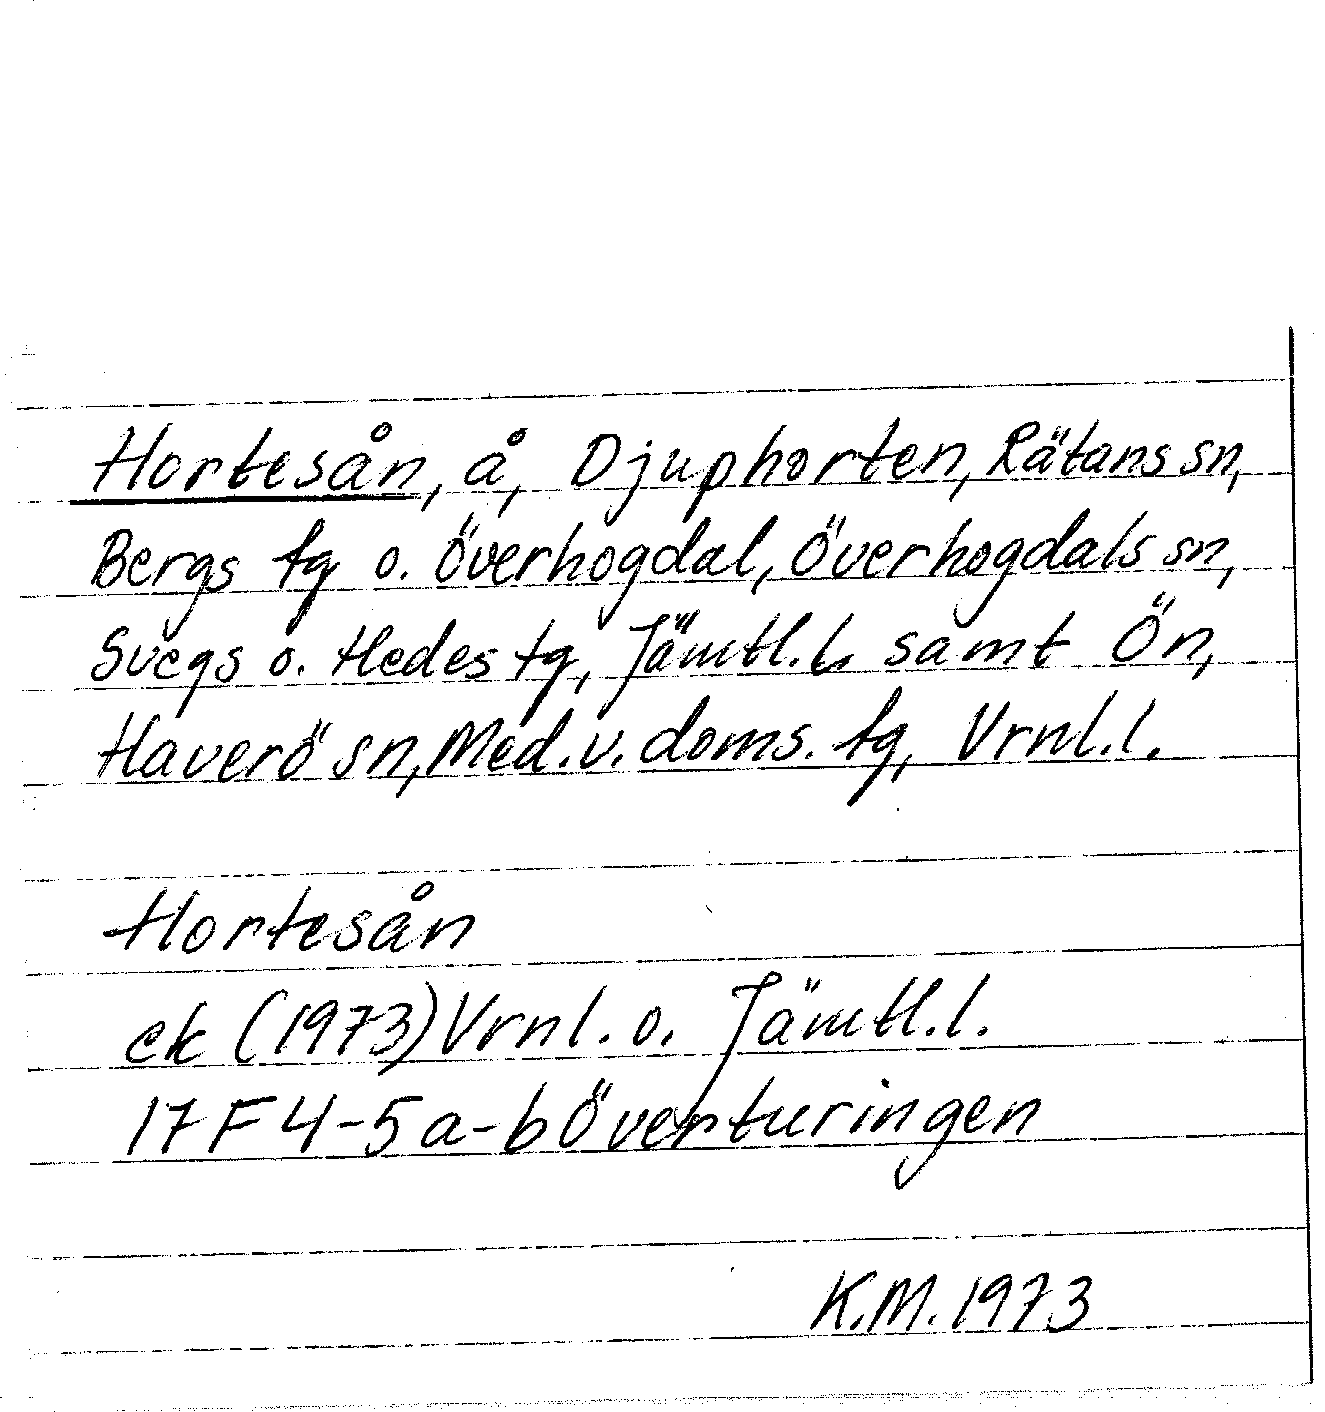 Hortesån, å, Djuphorten, Rätans sn,
Bergs tg o. Överhogdal, Överhogdals sn,
Svegs o. Hedes tg, Jämtl.l. samt Ön,
Haverö sn, Med.v.doms. tg, Vrnl.l.
Hortesån
ek (1973) Vrnl. o. Jämtl.l.
17F 4-5 a-b Överturingen
K.M. 1973